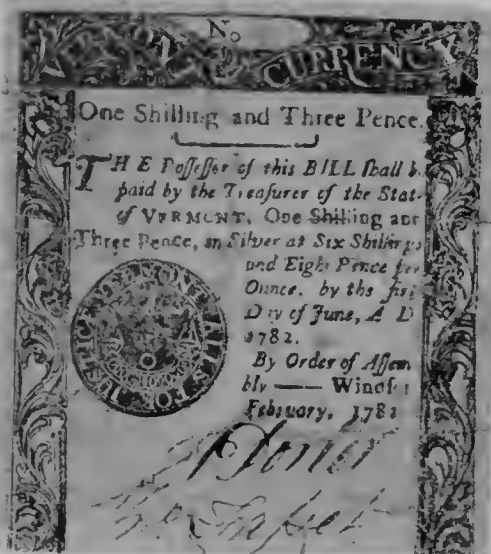 No
CURRENCY
One Shilling and Three Pence.
THE Poſſeſſor of this BILL ſhall b
paid by the Treaſurer of the Stat
of VERMONT, One Shilling and
Three Pence, in Silver at Six Shillings
and Eight Pence per
Ounce, by the firſt
Day of June, A D
1782.
By Order of Aſſem
bly — Windſor
February, 1781